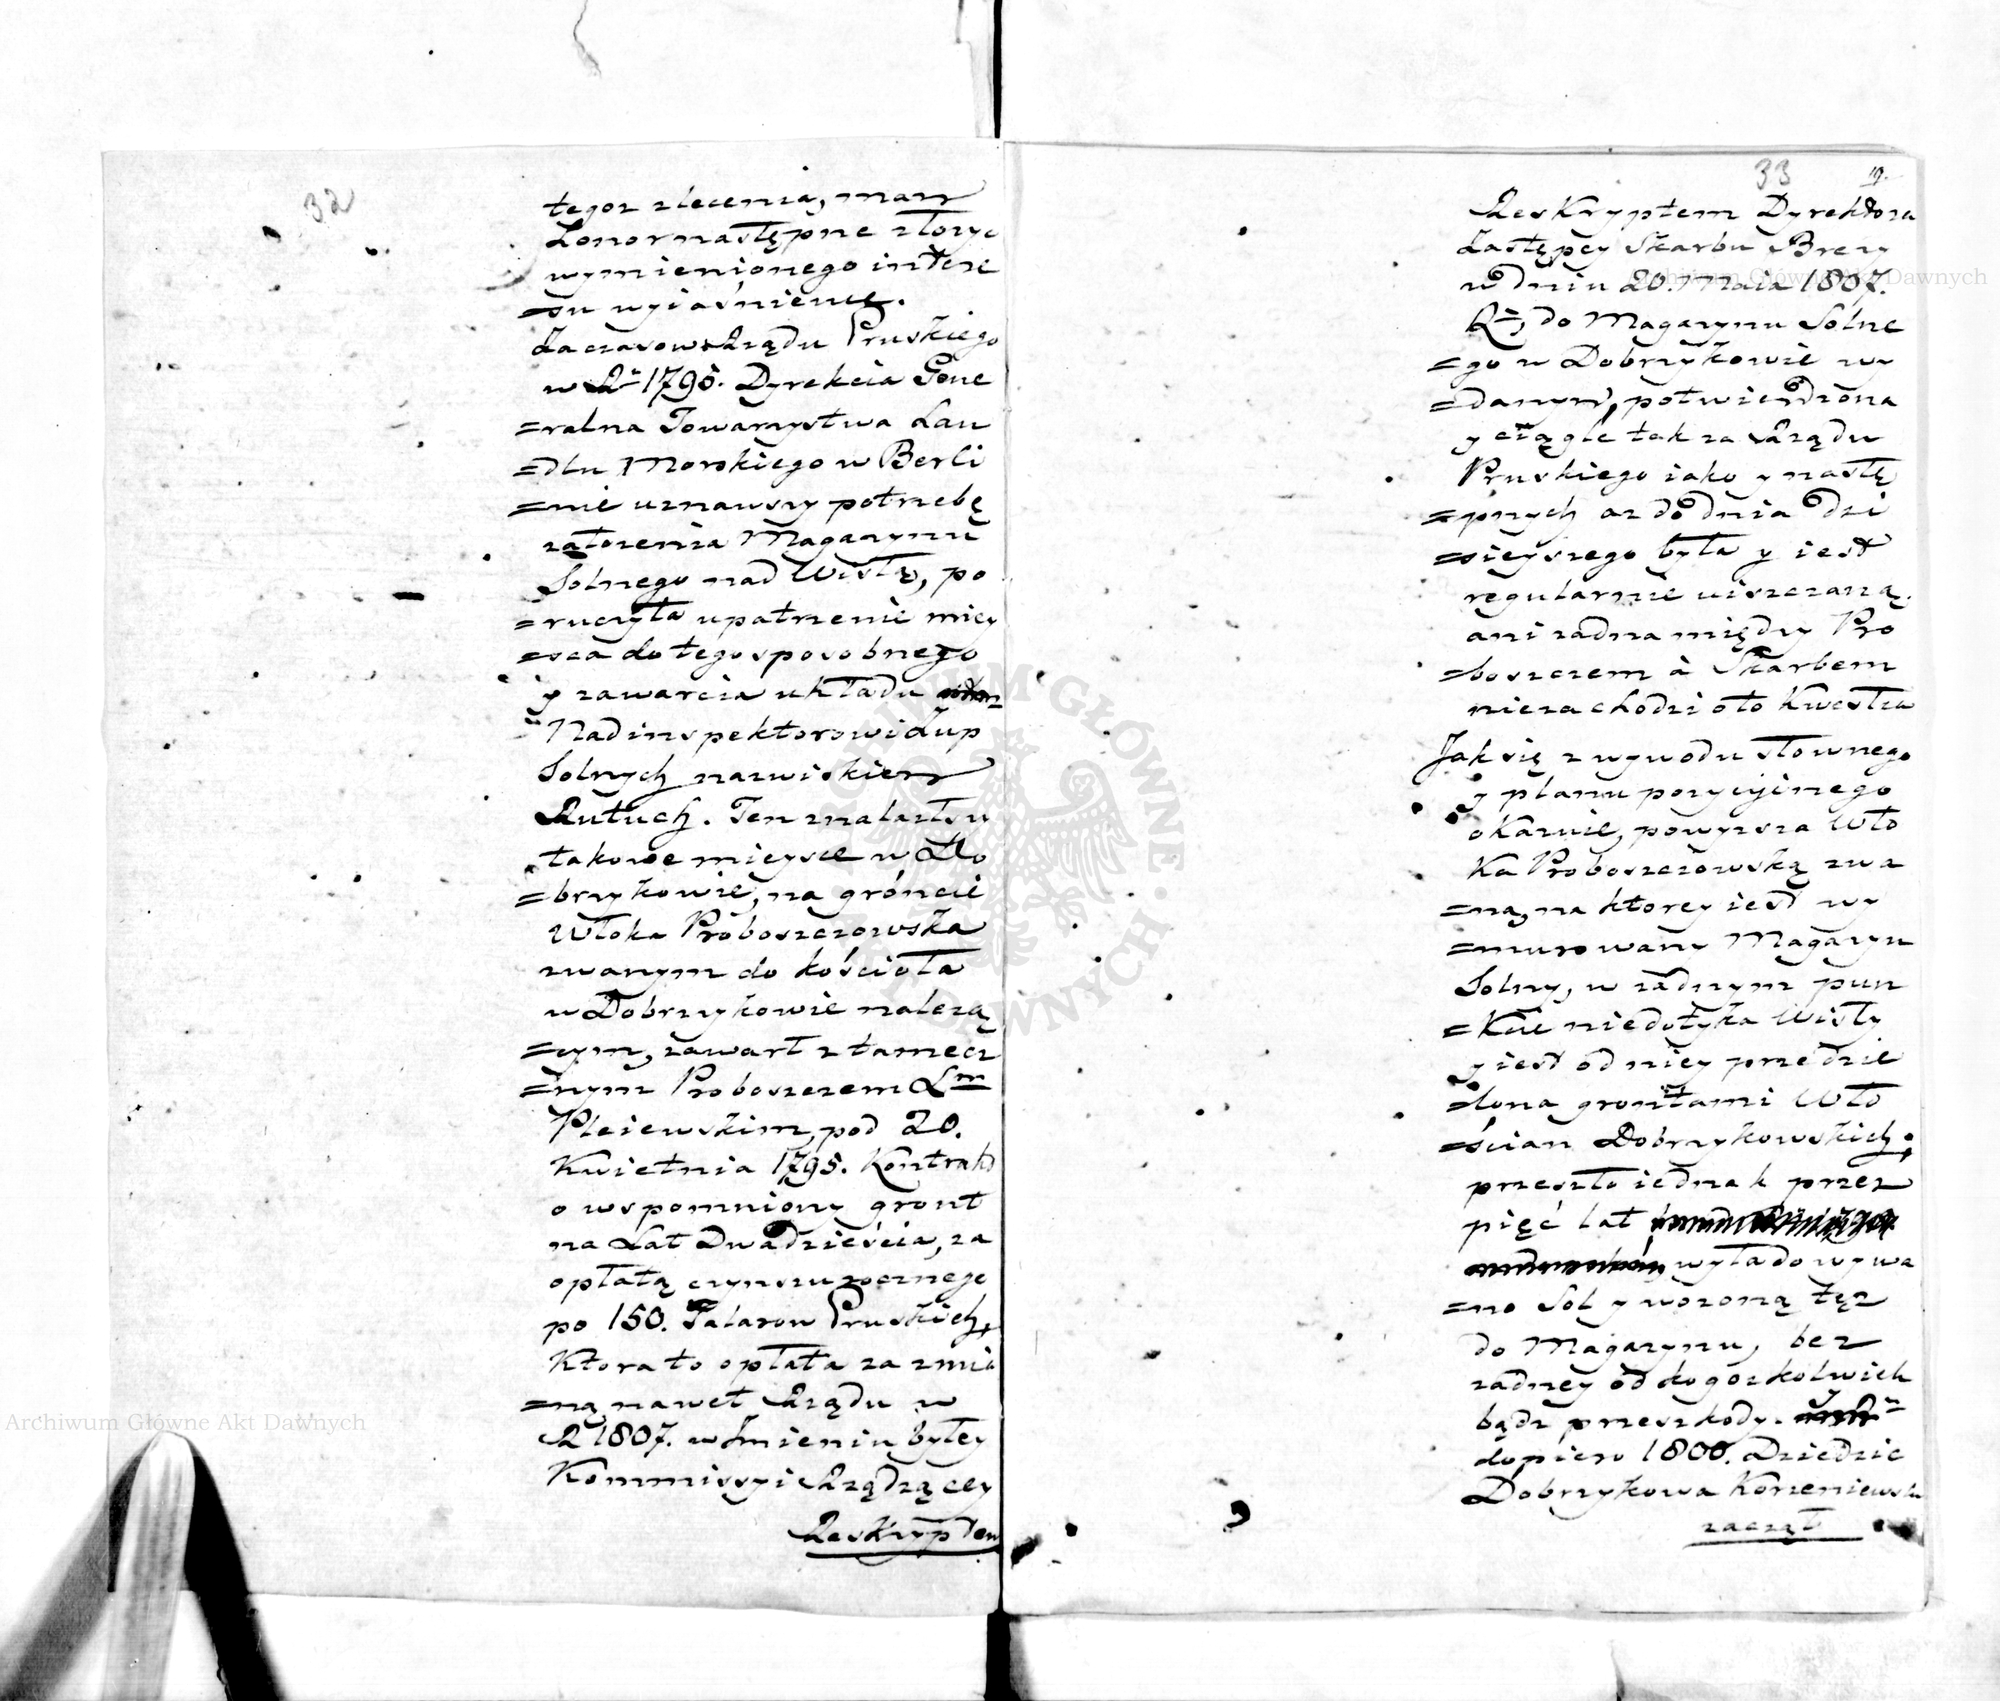 32
tegoz zlecenia, mam
honor następne złożyc
wymienionego intere
=su wyiaśnienie.
Za czasow Rządu Pruskiego
w R. 1795. Dyrekcia Gene
=ralna Towarzystwa Han
=dlu Morskiego w Berli
=nie uznawszy potrzebę
załozenia Magazynu
Solnego nad Wisłą, po
=ruczyła upatrzenie miey
=sca do tego sposobnego
y zawarcia układu
Nadinspektorowi Żup
Solnych nazwiskiem
Rutuch. Ten znalazłszy
takowe mieysce w Do
=brzykowie, na gróncie
Włoka Proboszczowska
zwanym do kościoła
w Dobrzykowie nalezą
=cym, zawarł z tamecz
=nym Proboszczem
Pleiewskim, pod 20.
Kwietnia 1795. Kontrakt
o wspomniony gront
na Lat Dwadzieścia, za
opłatą czynszu rocznego
po 150. Talarow Pruskich,
Ktora to opłata za zmia
=ną nawet Rządu w
R 1807. w Imieniu byłey
Kommissyi Rządzącey
Reskryptem
33
19.
Reskryptem Dyrektora
Zastępcy Skarbu Brezy
w dniu 20. Maia 1807.
R=, do Magazynu Solne
=go w Dobrzykowie wy
=danym, potwierdzona
y ciągle tak za Rządu
Pruskiego iako y nastę
=pnych az do dnia dzi
=sieyszego była y iest
regularnie uiszczaną,
ani zadna między Pro
=boszczem à Skarbem
niezachodzi oto Kwestia
Jak się z wywodu słownego
y planu pozycyinego
okazuie, powyzsza Wło
Ka Proboszczowską zwa
=na, na ktorey iest wy
=murowany Magazyn
Solny, w zadnym pun
=kcie niedotyka Wisły
y iest od niey przedzie
=lona grontami Wło
=ścian Dobrzykowskich;
przeszło iednak przez
pięć lat
wyładowywa
=no Sol y wozoną tęz
do Magazynu, bez
zadney od kogozkolwiek
bądz przeszkody.
dopiero 1800. Dziedzic
Dobrzykowa Korzeniewski
zaczął
Archiwum Główne Akt Dawnych
Archiwum Główne Akt Dawnych
ARCHIWUM GŁÓWNE AKT DAWNYCH